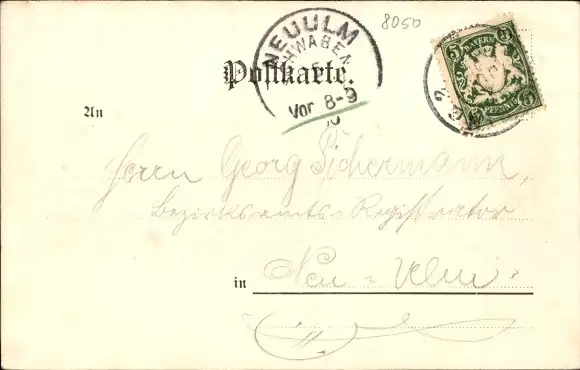 8050
NEUULM
SCHWABEN
Vor 8-9
BAYERN
5 5
PFENNIG
Postkarte.
An
Herrn Georg
Bezirksamts-Registrator
in Neu-Ulm.